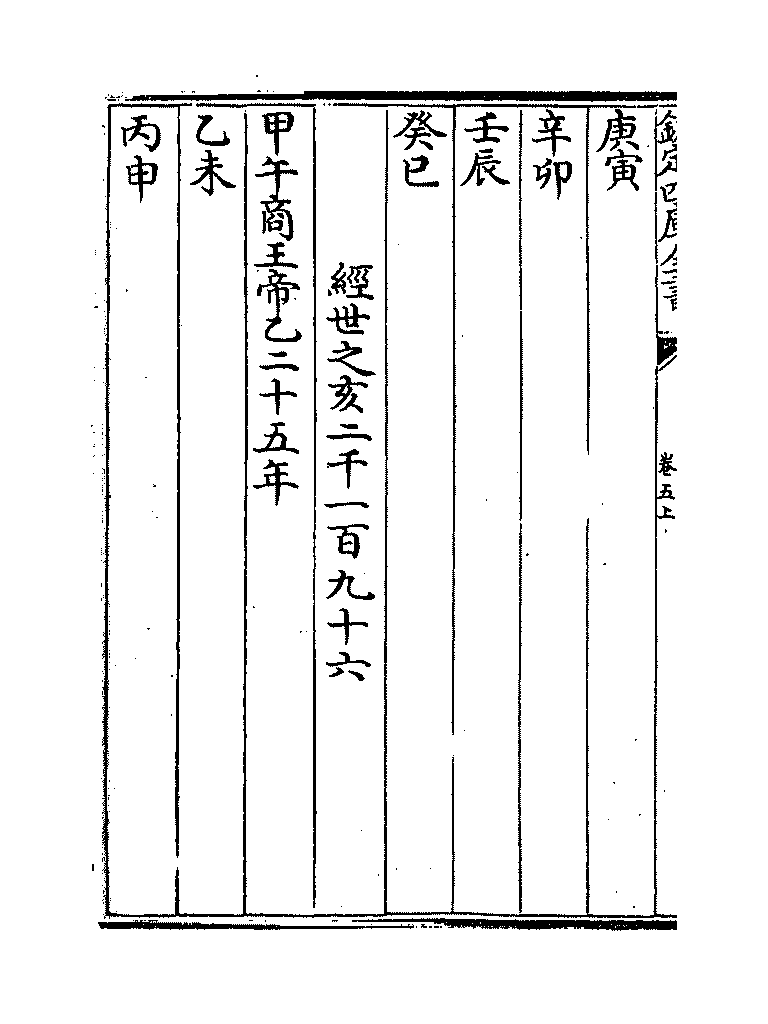 欽定四庫全書
卷五上
庚寅
辛卯
壬辰
癸巳
經世之亥二千一百九十六
甲午商王帝乙二十五年
乙未
丙申